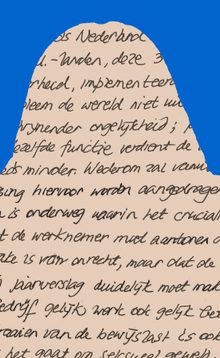 ls Nederland
-landen, deze 3
erheid, implementeer
leem de wereld niet uit
rijnender ongelijkheid ;
zelfde functie verdient de
eds minder. Wederom zal
sing hiervoor worden aangedragen
is onderwijs waarin het cruciaal
t de werknemer moet aantonen d
ake is van onrecht, maar dat de
jaarverslag duidelijk moet mak
edrijf gelijk werk ook gelijk be
raaien van de bewijslast is ook
het gaat om seksueel gewel